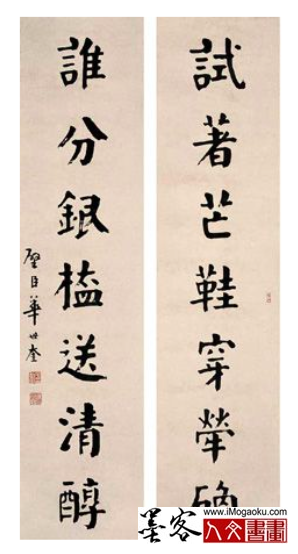 試著芒鞋穿犖
誰分銀榼送清醇
璧臣華世奎
墨客
www.iMogaoku.com
人文書畫